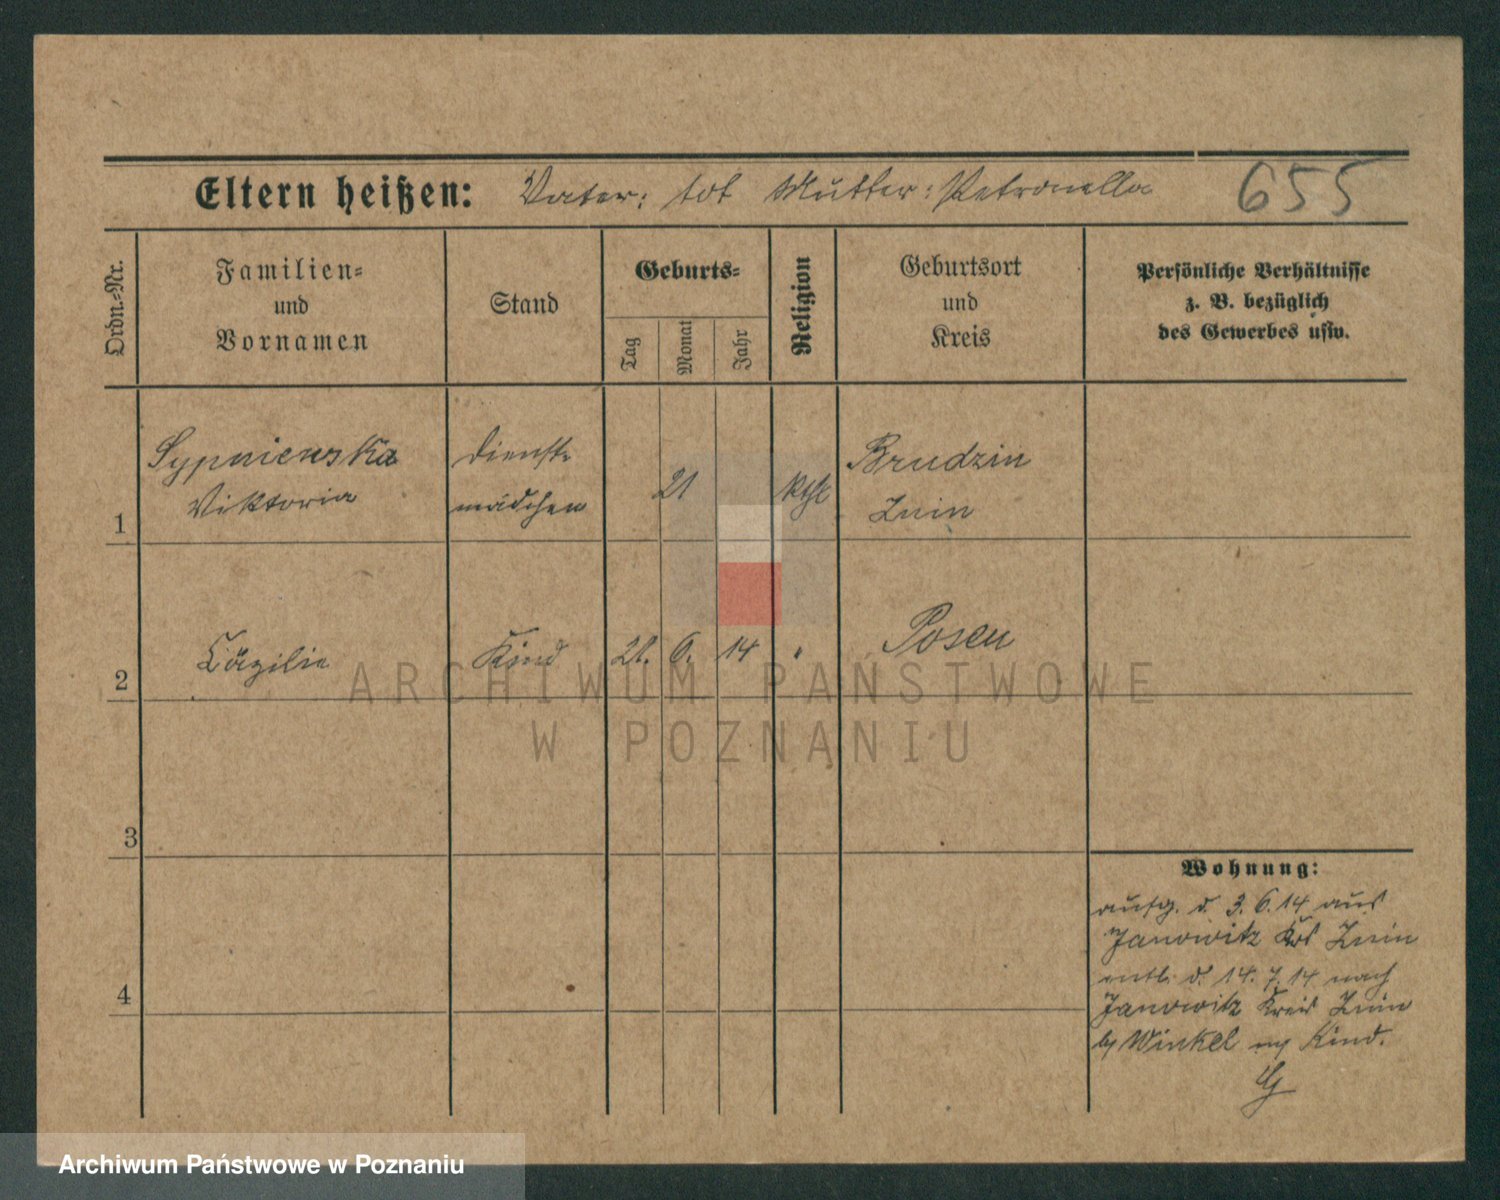 Eltern heißen: Vater: tot Mutter: Petronella 655
Ordn.-Nr.
Familien-
und
Vornamen
Stand
Geburts-
Tag
Monat
Jahr
Religion
Geburtsort
und
Kreis
Persönliche Verhältnisse
z. B. bezüglich
des Gewerbes usw.
1
Sypniewska
Viktoria
Dienst-
mädchen
21
kth
Brudzin
Znin
2
Cäzilie
Kind
21. 6. 14
"
Posen
3
4
Wohnung:
aufg. d. 3.6.14 aus
Janowitz Krs Znin
entl. d. 14.7.14 nach
Janowitz Kreis Znin
b/ Winkel m/ Kind.
ARCHIWUM PAŃSTWOWE
W POZNANIU
Archiwum Państwowe w Poznaniu